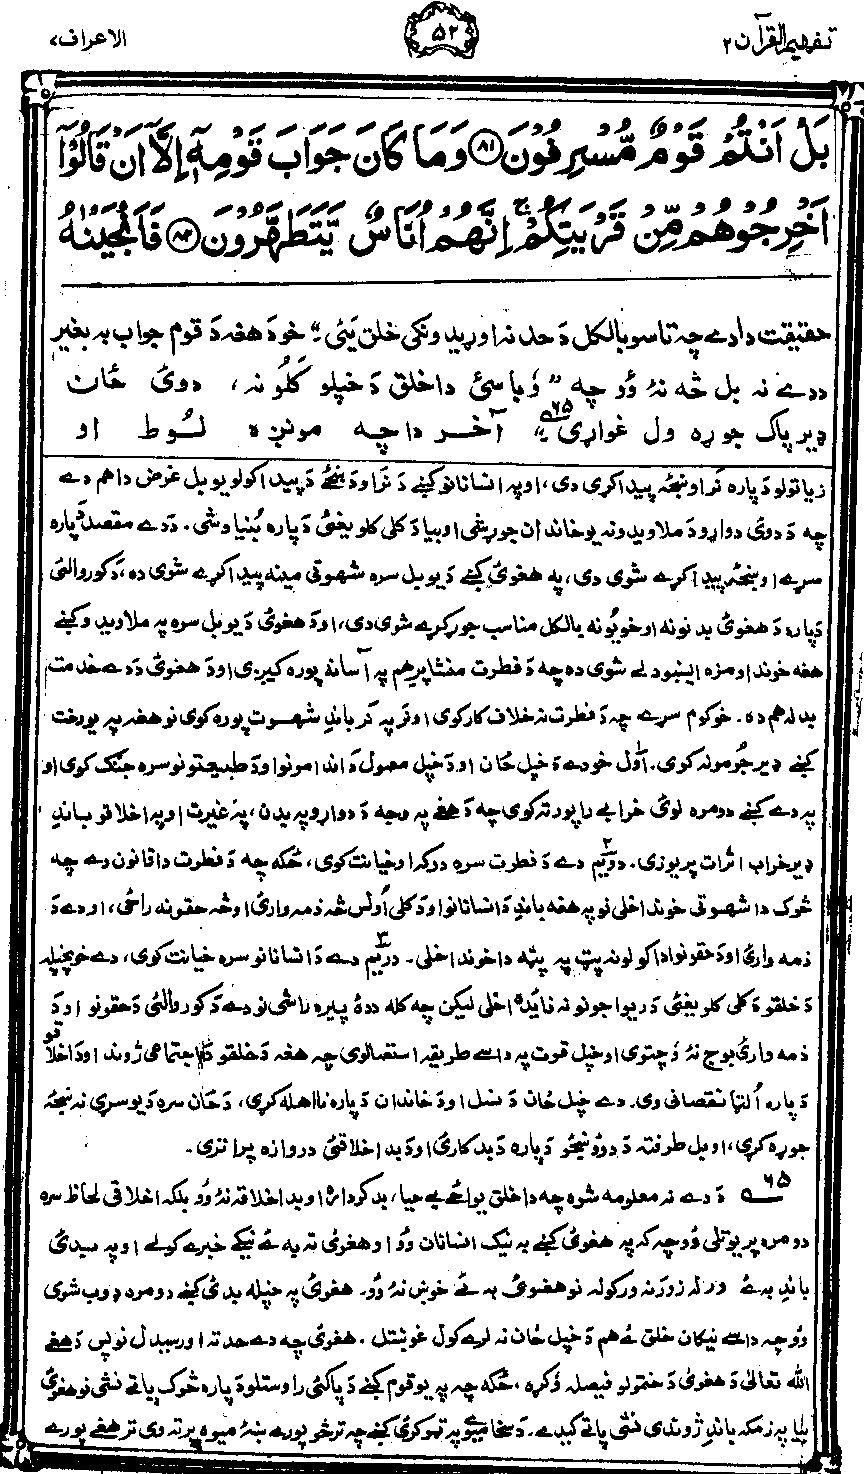 تفهيم القرآن ۲
۵۲
الاعراف ۷
بَلْ اَنْتُمْ قَوْمٌ مُّسْرِفُوْنَ ﴿۸۱﴾ وَمَا كَانَ جَوَابَ قَوْمِهٖٓ اِلَّآ اَنْ قَالُوْٓا
اَخْرِجُوْهُمْ مِّنْ قَرْيَتِكُمْ ۚ اِنَّهُمْ اُنَاسٌ يَّتَطَهَّرُوْنَ ﴿۸۲﴾ فَاَنْجَيْنٰهُ
حقيقت دا دے چه تاسو بالكل دَ حد نه اوړيدونكی خلق يئ ؞“ خو دَ هغه دَ قوم جواب به بغير
ددے نه بل څه نۀ وُو چه ”وُباسئ دا خلق دَ خپلو كلُو نه، دوئ ځان
ډير پاک جوړه ول غواړی ؞“ ۶۵ آخر دا چه مونږه لُوط او
زياتولو دَ پاره نَر او ښځه پيدا كړی دی، او په انسانانو كښے دَ نَر او دَ ښځے دَ پيدا كولو يو بل غرض دا هم دے
چه دَ دوئ دواړو دَ ملاويدو نه يو خاندان جوړشی او بيا دَ كلی كلوبغئ دَ پاره بُنياد شی. دَ دے مقصد دَ پاره
سړے او ښځه پيدا كړے شوی دی، په هغوئ كښے دَ يو بل سره شهوتی مينه پيدا كړے شوی ده، دَ كوروالئ
دَ پاره دَ هغوئ بدنونه او خويونه بالكل مناسب جوړ كړے شوی دی، او دَ هغوئ دَ يو بل سره په ملاويدو كښے
هغه خوند او مزه ايښودلے شوی ده چه دَ فطرت منشا پرے هم په آسانه پوره كيږی او دَ هغوئ دَ دے خدمت
بدله هم ده. خو كوم سړے چه دَ فطرت نه خلاف كار كوی او نَر په نَر باندِ شهوت پوره كوی نو هغه په يو وخت
كښے ډير جُرمونه كوی. اوّل خو دے دَ خپل ځان او دَ خپل معمول دَ اندامونو او دَ طبيعتونو سره جنګ كوی او
په دے كښے دومره لوئ خرابی راپورته كوی چه دَ هغے په وجه دَ دواړو په بدن، په غيرت او په اخلاقو باندِ
ډير خراب اثرات پريوزی. دوئيم دے دَ فطرت سره دركه او خيانت كوی، ځكه چه دَ فطرت دا قانون دے چه
څوک دا شهوتی خوند اخلی نو په هغه باندِ دَ انسانانو او دَ كلی اُولس څه ذمه وارئ او څه حقونه راځی، او دے دَ
ذمه وارئ او دَ حقونو ادا كولو نه پټ په پټه دا خوند اخلی. دريم دے دَ انسانانو سره خيانت كوی، دے خو خپله
دَ خلقو دَ كلی كلوبغئ دَ ډيرو اجونو نه فائده اخلی ليكن چه كله ددۀ پيره راشی نو دے دَ كوروالئ دَ حقونو او دَ
ذمه وارئ بوج نۀ دَ چتوی او خپل قوت په داسے طريقه استعمالوی چه هغه دَ خلقو دَ اجتماعی ژوند او دَ اخلاقو
دَ پاره اُلټا نقصانی وی. دے خپل ځان دَ نسل او دَ خاندان دَ پاره نااهله كړی، دَ ځان سره دَ يو سړی نه ښځه
جوړه كړی، او بل طرفته دَ دوؤ ښځو دَ پاره دَ بدكارئ او دَ بد اخلاقئ دروازه پرانزی.
۶۵ دَ دے نه معلومه شوه چه دا خلق يواځے بے حيا، بدكرداره او بد اخلاقه نۀ وُو بلكه اخلاقی لحاظ سره
دومره پريوتلی وُو چه كه په هغوئ كښے به نيک انسانان وُو او هغوئ ته به ئے نيكے خبرے كولے او په بيدئ
باندِ به ئے ورله زورنه وركوله نو هغوئ به ئے خوښ نۀ وُو. هغوئ په خپله بدئ كښے دومره ډوب شوی
وُو چه داسے نيكان خلق ئے هم دَ خپل ځان نه لرے كول غوښتل. هغوئ چه دے حد ته اورسيدل نو پس دَ هغے
الله تعالیٰ دَ هغوئ دَ ختمولو فيصله وُكړه، ځكه چه په يو قوم كښے دَ پاكئ راوستلو دَ پاره څوک پاتے نشی نو هغوئ
بيا په زمكه باندِ ژوندی نشی پاتے كيدے. دَ سخا ميوو په ټوكرئ كښے چه ترڅو پورے ښۀ ميوه پرته وی تر هغے پورے